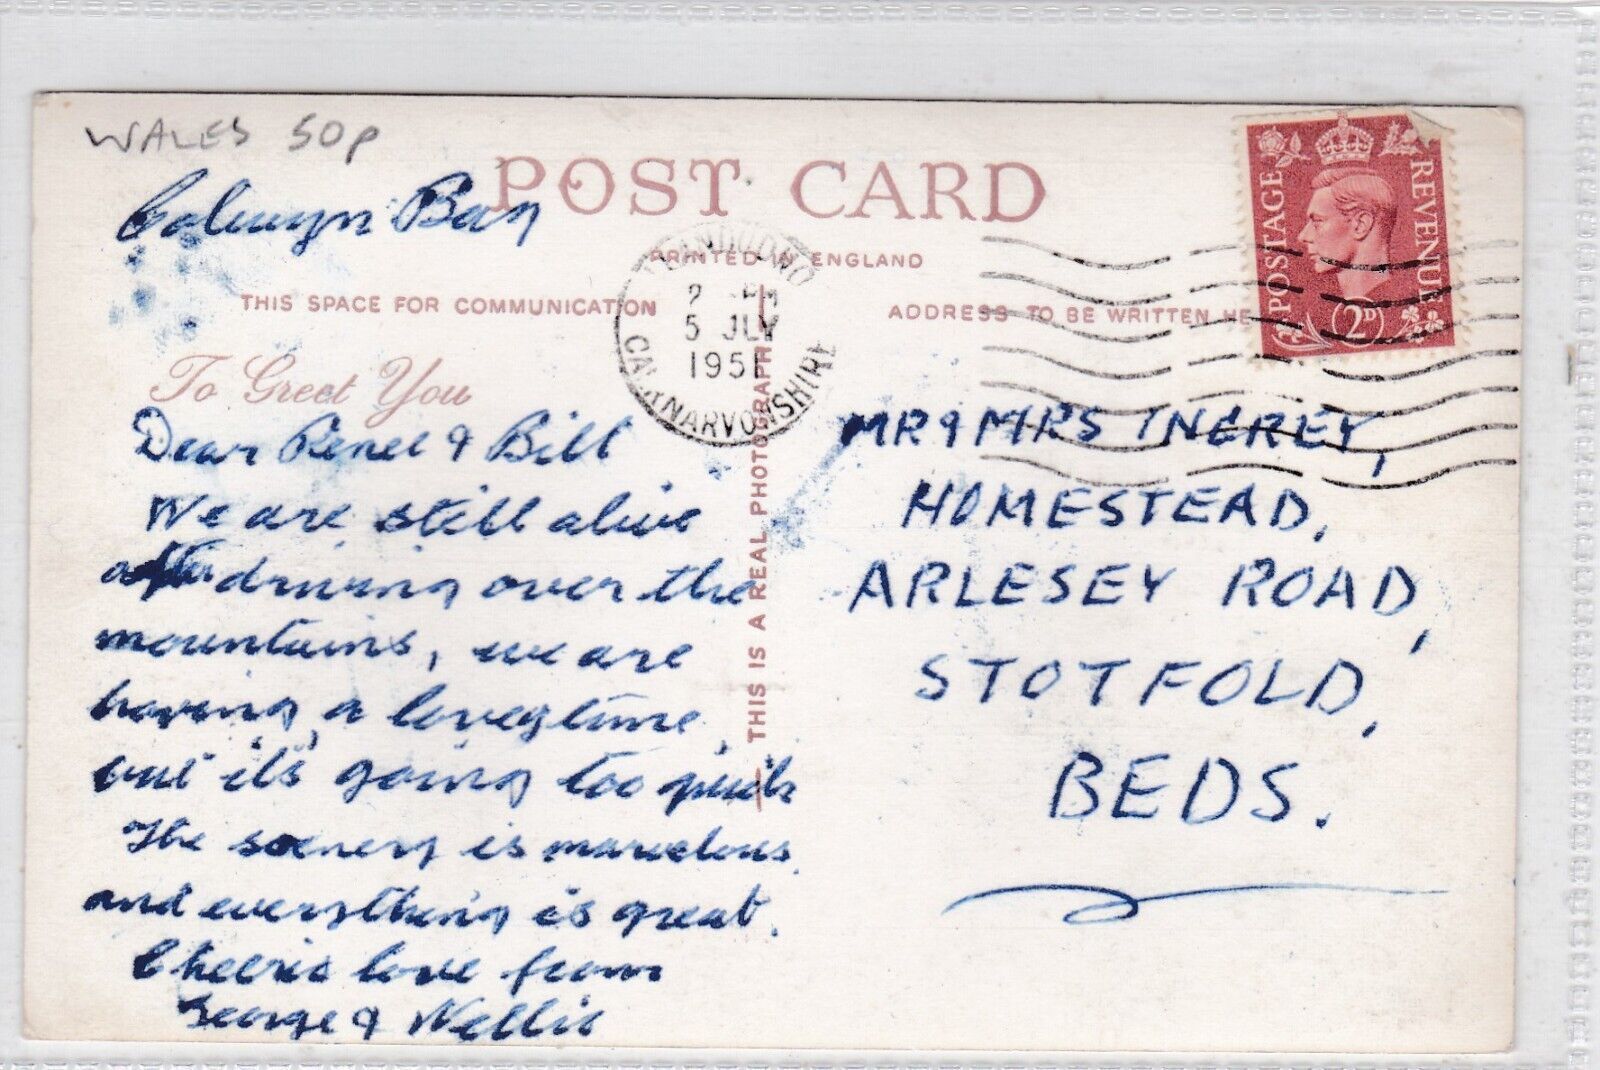 WALES 50p
POST CARD
Colwyn Bay
PRINTED IN ENGLAND
THIS SPACE FOR COMMUNICATION
ADDRESS TO BE WRITTEN HE
LLANDUDNO
2 PM
5 JLY
1951
CAERNARVONSHIRE
POSTAGE
REVENUE
2D
To Greet You
Dear Renee & Bill
We are still alive
after driving over the
mountains, we are
having a lovely time,
but it's going too quick
The scenery is marvelous
and everything is great.
Cheerio love from
George & Nellie
THIS IS A REAL PHOTOGRAPH
MR & MRS INGREY,
HOMESTEAD,
ARLESEY ROAD,
STOTFOLD,
BEDS.